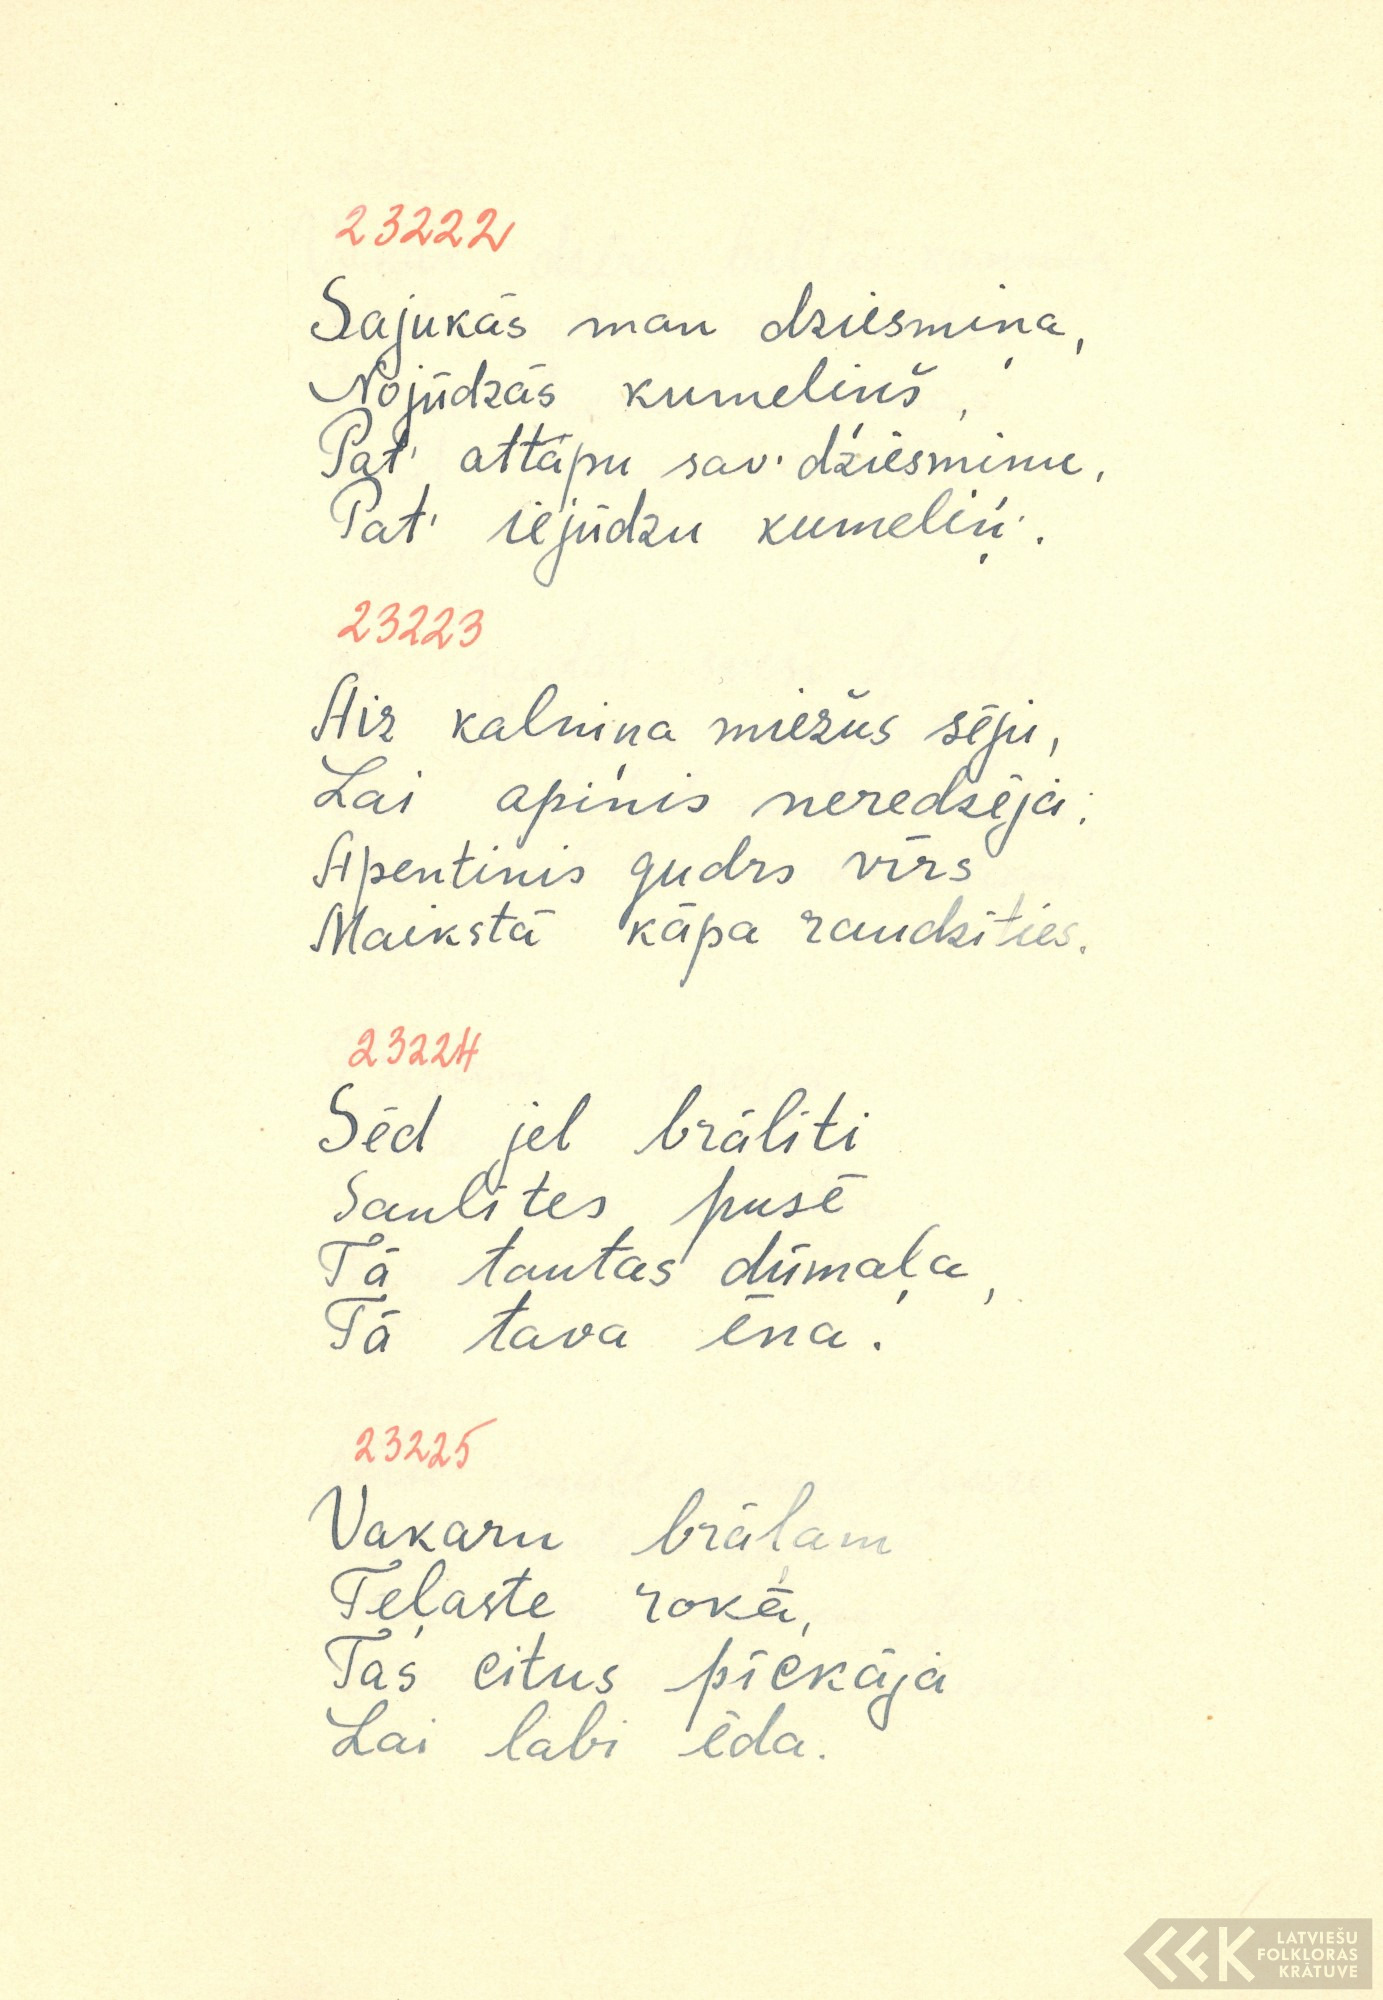 23222
Sajukās man dziesmiņa,
Nojūdzās kumeliņš,
Pat' attapu sav' dziesmiņu,
Pat' iejūdzu kumeliņ'.
23223
Aiz kalniņa miežus sēju,
Lai apinis neredzēja;
Apentinis gudrs vīrs
Maikstā kāpa raudzīties.
23224
Sēd jel brālīti
Saulītes pusē
Tā tautas dūmaļa,
Tā tava ēna.
23225
Vakaru brāļam
Teļaste rokā,
Tas citus pīckāja
Lai labi ēda.
LATVIEŠU
FOLKLORAS
KRĀTUVE